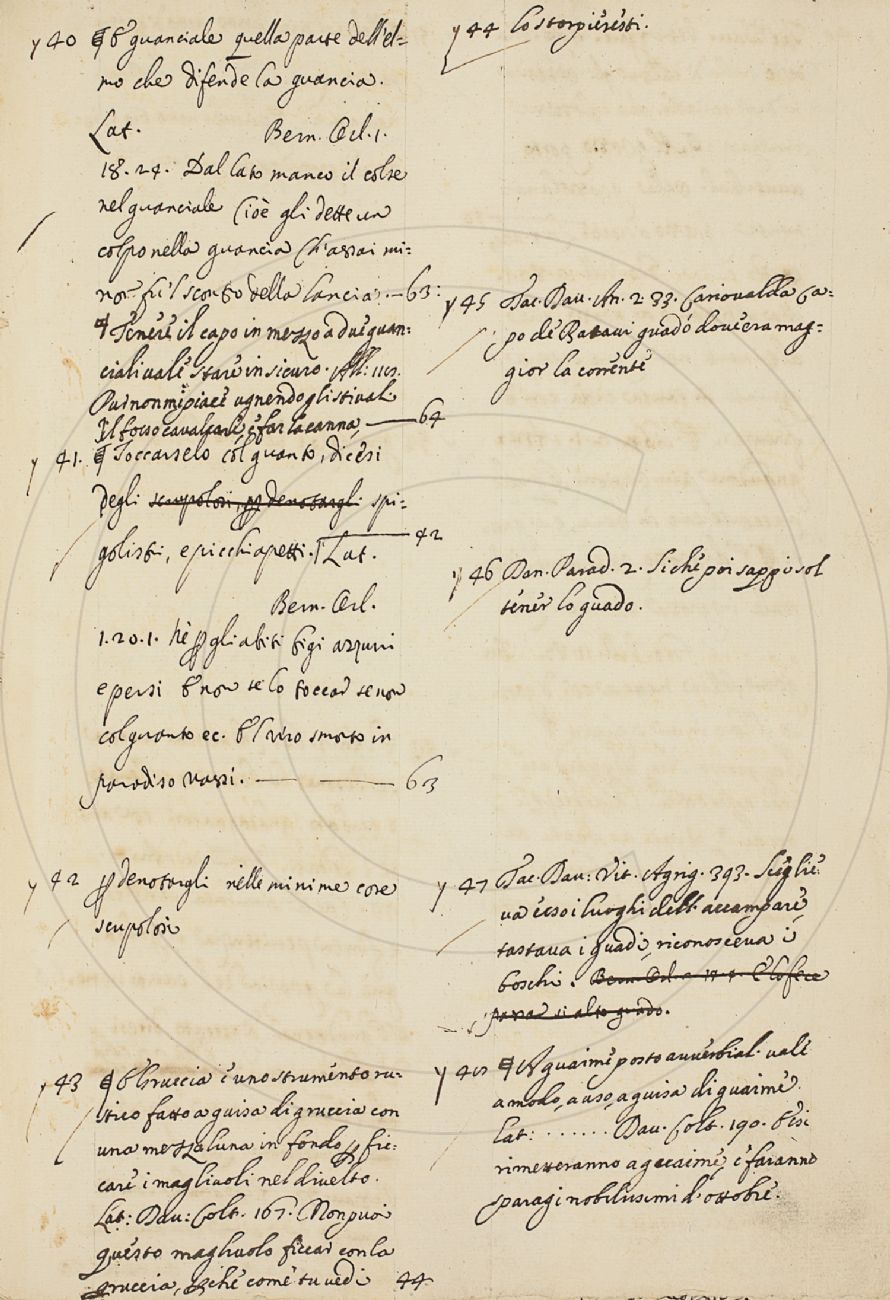 y 40 ¶ E guanciale quella parte dell'el=
mo che difende la guancia.
Lat. Bern. Orl. 1.
18. 24. Dal lato manco il colse
nel guanciale Cioè gli dette un
colpo nella guancia Ch'assai mi=
nor fu'l scontro della lancia. — 63:
¶ Tenere il capo in mezzo a due guan:
ciali vale stare in sicuro. All:
Pur non mi piace ugnendogli stivali
Il fosso cavalcare, e far la canna, — 64
y 41. ¶ Toccarselo col guanto, dicesi
degli scrupolosi, p denotargli spi=
golistri, e picchiapetti. Lat. — 42
Bern. Orl.
1. 20. 1. Nè p gli abiti bigi azzurri
e persi E non se lo toccar se non
col guanto ec. E'l viso smorto in
paradiso vassi. — — 63
y 42 p denotargli nelle minime cose
scrupolosi
y 43 ¶ E Gruccia è uno strumento ru=
stico fatto a guisa di gruccia con
una mezza luna in fondo p fic=
care i magliuoli nel divelto.
Lat: Dav: Colt. 167. Non puoi
questo magliuolo ficcar con la
gruccia, pchè come tu vedi 44
y 44 lo storpieresti.
y 45 Tac. Dav. An. 2. 33. Cariovalda Ca=
po de Batavi guadó dov'era mag=
gior la corrente
y 46 Dan. Parad. 2. Sichè poi sappi sol
tener lo guado.
y 47 Tac. Dav: Vit. Agrig. 393. Sceglie
va esso i luoghi dell' accampare,
tastava i guadi, riconosceva i
boschi. Bern. Orl. E lo fece
passar si alto guado.
y ¶ A guaime posto avverbial. vale
a modo, a uso, a guisa di guaime.
Lat: . . . . . . Dav. Colt. 190. E si
rimetteranno a guaime, e faranno
sparagi nobilissimi d'ottobre.